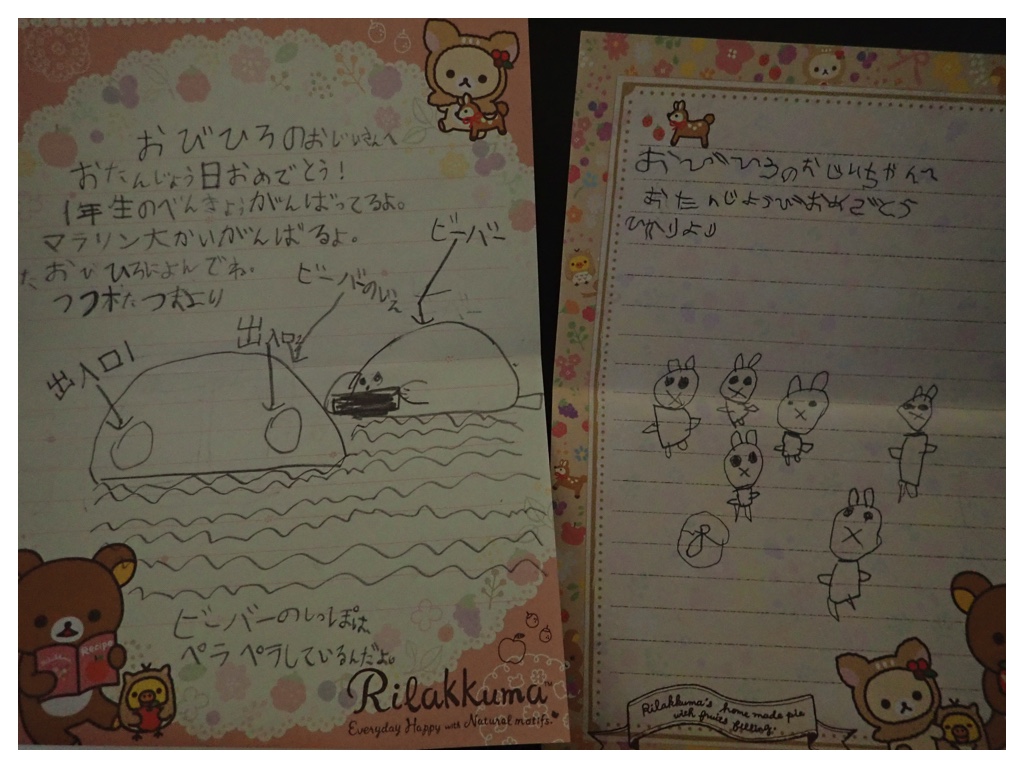 おびひろのおじいさんへ
おたんじょう日おめでとう!
1年生のべんきょうがんばってるよ。
マラソン大かいがんばるよ。
おびひろによんでね。
より
ビーバー
ビーバーのいえ
出入口
出入口
ビーバーのしっぽは
ペラペラしているんだよ。
Recipe
Rilakkuma™
Everyday Happy with Natural motifs.
おびひろのおじいちゃんへ
おたんじょうびおめでとう
ひかりより
Rilakkuma's home made pie
with fruits filling.